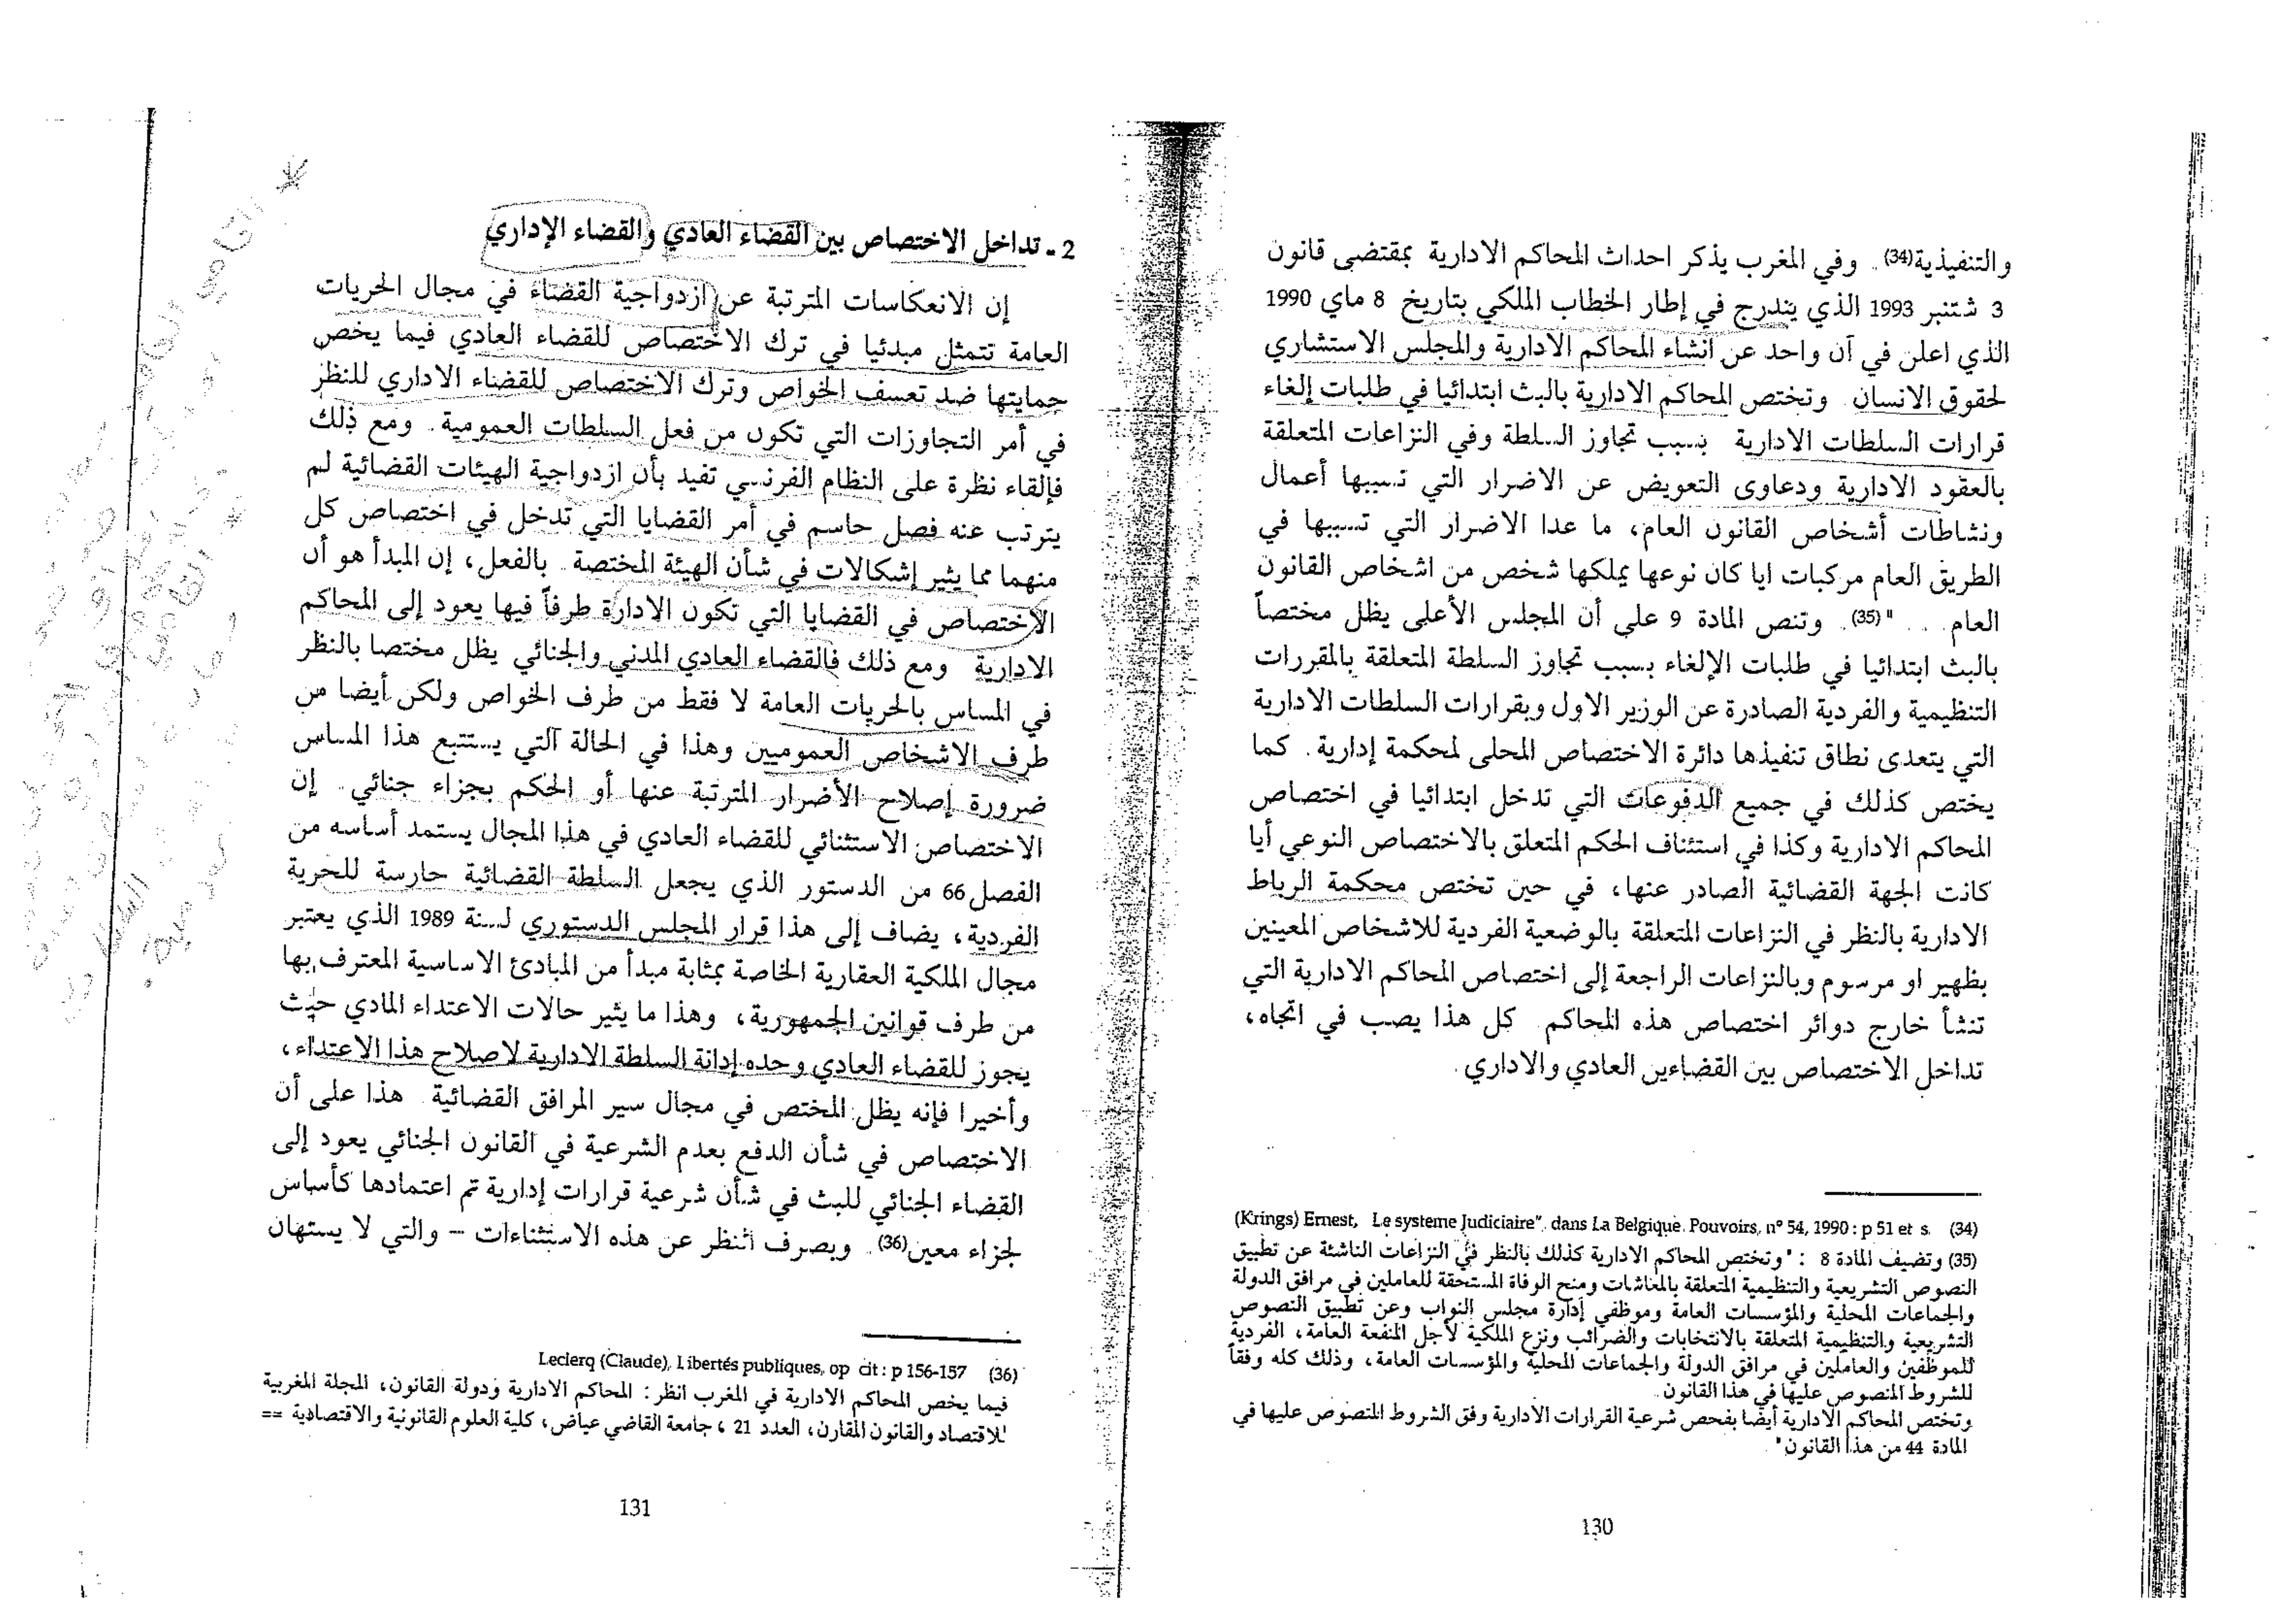 والتنفيذية(34). وفي المغرب يذكر احداث المحاكم الادارية بمقتضى قانون
3 شتنبر 1993 الذي يندرج في إطار الخطاب الملكي بتاريخ 8 ماي 1990
الذي اعلن في آن واحد عن انشاء المحاكم الادارية والمجلس الاستشاري
لحقوق الانسان. وتختص المحاكم الادارية بالبث ابتدائيا في طلبات إلغاء
قرارات السلطات الادارية بسبب تجاوز السلطة وفي النزاعات المتعلقة
بالعقود الادارية ودعاوى التعويض عن الاضرار التي تسببها أعمال
ونشاطات أشخاص القانون العام، ما عدا الاضرار التي تسببها في
الطريق العام مركبات ايا كان نوعها يملكها شخص من اشخاص القانون
العام... "(35). وتنص المادة 9 على أن المجلس الأعلى يظل مختصاً
بالبث ابتدائيا في طلبات الإلغاء بسبب تجاوز السلطة المتعلقة بالمقررات
التنظيمية والفردية الصادرة عن الوزير الاول وبقرارات السلطات الادارية
التي يتعدى نطاق تنفيذها دائرة الاختصاص المحلى لمحكمة إدارية. كما
يختص كذلك في جميع الدفوعات التي تدخل ابتدائيا في اختصاص
المحاكم الادارية وكذا في استئناف الحكم المتعلق بالاختصاص النوعي أيا
كانت الجهة القضائية الصادر عنها، في حين تختص محكمة الرباط
الادارية بالنظر في النزاعات المتعلقة بالوضعية الفردية للاشخاص المعينين
بظهير او مرسوم وبالنزاعات الراجعة إلى اختصاص المحاكم الادارية التي
تنشأ خارج دوائر اختصاص هذه المحاكم كل هذا يصب في اتجاه،
تداخل الاختصاص بين القضاءين العادي والاداري.
(34) (Krings) Ernest, Le systeme Judiciaire". dans La Belgique. Pouvoirs, n° 54, 1990 : p 51 et s.
(35) وتضيف المادة 8 : "وتختص المحاكم الادارية كذلك بالنظر في النزاعات الناشئة عن تطبيق
النصوص التشريعية والتنظيمية المتعلقة بالمعاشات ومنح الوفاة المستحقة للعاملين في مرافق الدولة
والجماعات المحلية والمؤسسات العامة وموظفي إدارة مجلس النواب وعن تطبيق النصوص
التشريعية والتنظيمية المتعلقة بالانتخابات والضرائب ونزع الملكية لأجل المنفعة العامة، الفردية
للموظفين والعاملين في مرافق الدولة والجماعات المحلية والمؤسسات العامة، وذلك كله وفقاً
للشروط المنصوص عليها في هذا القانون.
وتختص المحاكم الادارية أيضا بفحص شرعية القرارات الادارية وفق الشروط المنصوص عليها في
المادة 44 من هذا القانون".
130
2 - تداخل الاختصاص بين القضاء العادي والقضاء الإداري
إن الانعكاسات المترتبة عن ازدواجية القضاء في مجال الحريات
العامة تتمثل مبدئيا في ترك الاختصاص للقضاء العادي فيما يخص
حمايتها ضد تعسف الخواص وترك الاختصاص للقضاء الاداري للنظر
في أمر التجاوزات التي تكون من فعل السلطات العمومية. ومع ذلك
فإلقاء نظرة على النظام الفرنسي تفيد بأن ازدواجية الهيئات القضائية لم
يترتب عنه فصل حاسم في أمر القضايا التي تدخل في اختصاص كل
منهما مما يثير إشكالات في شأن الهيئة المختصة. بالفعل، إن المبدأ هو أن
الاختصاص في القضايا التي تكون الادارة طرفاً فيها يعود إلى المحاكم
الادارية ومع ذلك فالقضاء العادي المدني والجنائي يظل مختصا بالنظر
في المساس بالحريات العامة لا فقط من طرف الخواص ولكن أيضا من
طرف الاشخاص العموميين وهذا في الحالة التي يستتبع هذا المساس
ضرورة إصلاح الأضرار المترتبة عنها أو الحكم بجزاء جنائي. إن
الاختصاص الاستثنائي للقضاء العادي في هذا المجال يستمد أساسه من
الفصل 66 من الدستور الذي يجعل السلطة القضائية حارسة للحرية
الفردية، يضاف إلى هذا قرار المجلس الدستوري لسنة 1989 الذي يعتبر
مجال الملكية العقارية الخاصة بمثابة مبدأ من المبادئ الاساسية المعترف بها
من طرف قوانين الجمهورية، وهذا ما يثير حالات الاعتداء المادي حيث
يجوز للقضاء العادي وحده إدانة السلطة الادارية لاصلاح هذا الاعتداء،
وأخيرا فإنه يظل المختص في مجال سير المرافق القضائية. هذا على أن
الاختصاص في شأن الدفع بعدم الشرعية في القانون الجنائي يعود إلى
القضاء الجنائي للبث في شأن شرعية قرارات إدارية تم اعتمادها كأساس
لجزاء معين(36). وبصرف النظر عن هذه الاستثناءات – والتي لا يستهان
(36) Leclerq (Claude), Libertés publiques, op cit : p 156-157
فيما يخص المحاكم الادارية في المغرب انظر : المحاكم الادارية ودولة القانون، المجلة المغربية
للاقتصاد والقانون المقارن، العدد 21 ، جامعة القاضي عياض، كلية العلوم القانونية والاقتصادية ==
131